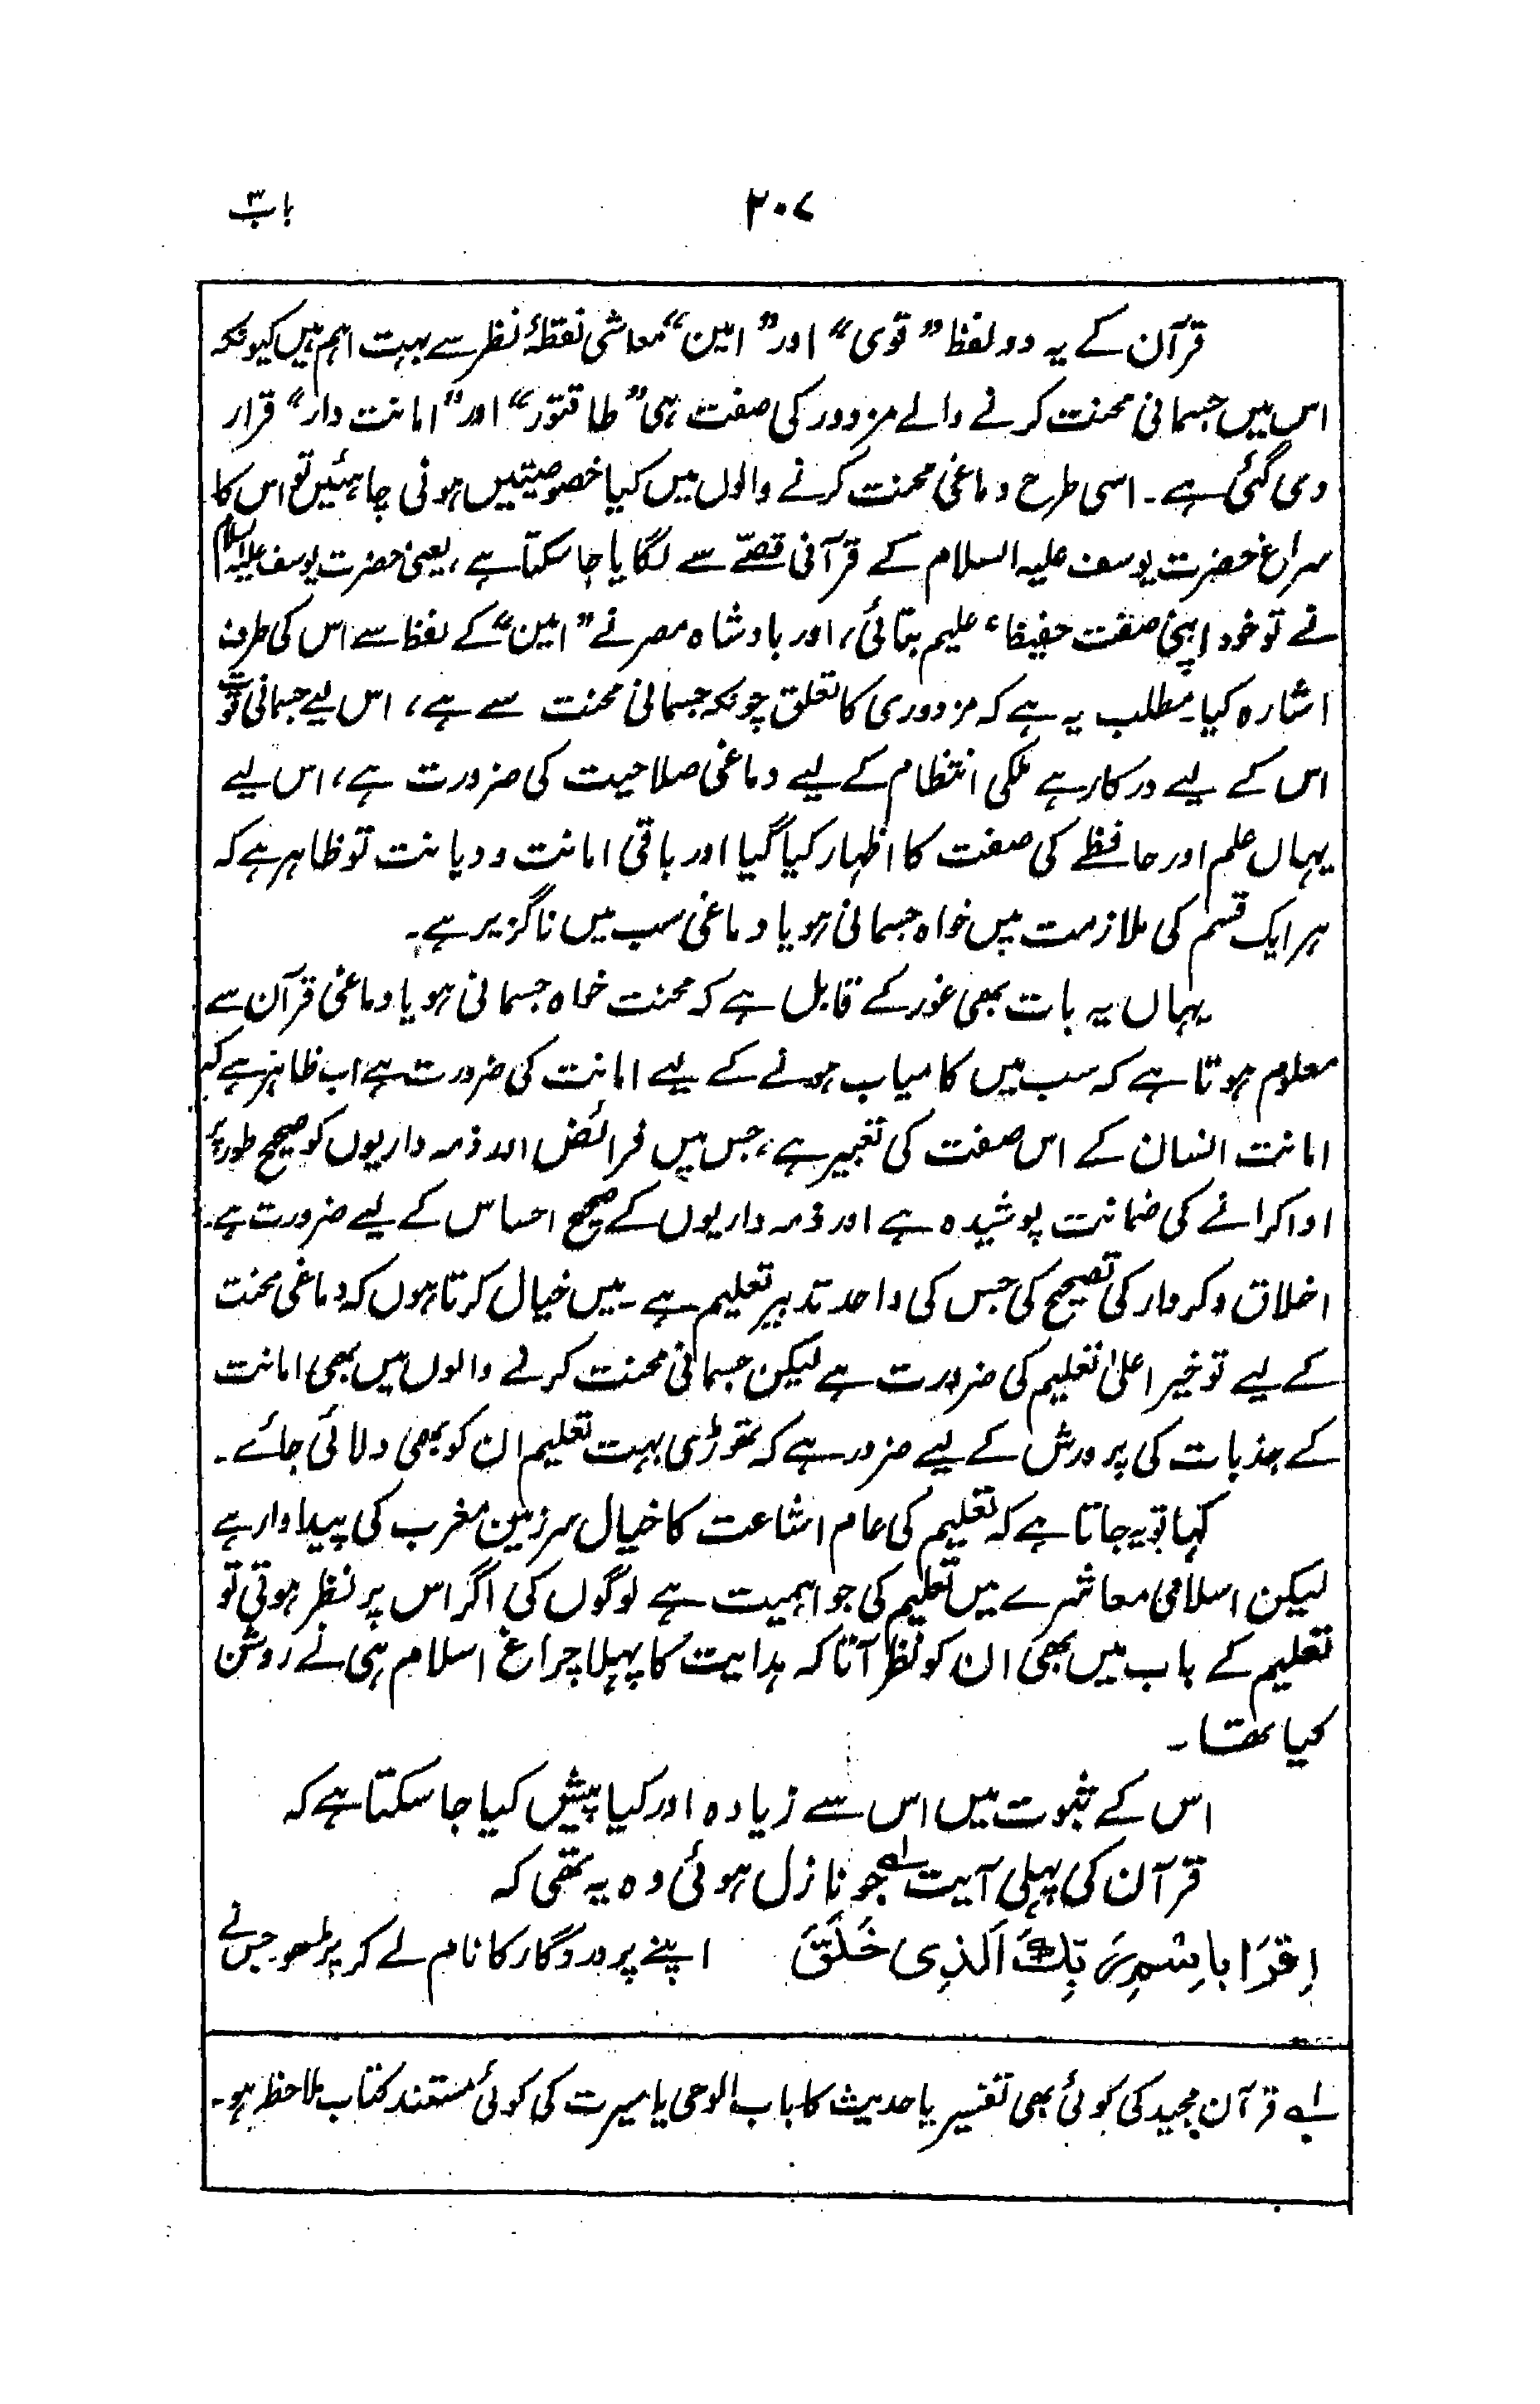 ۲۰۷ باب۳
قرآن کے یہ دو لفظ ”قوی“ اور ”امین“ معاشی نقطۂ نظر سے بہت اہم ہیں کیونکہ
اس میں جسمانی محنت کرنے والے مزدور کی صفت ہی ”طاقتور“ اور ”امانت دار“ قرار
دی گئی ہے۔ اسی طرح دماغی محنت کرنے والوں میں کیا خصوصیتیں ہونی چاہئیں تو اس کا
سراغ حضرت یوسف علیہ السلام کے قرآنی قصّے سے لگایا جا سکتا ہے، یعنی حضرت یوسف علیہ السلام
نے تو خود اپنی صفت حفیظ، علیم بتائی، اور بادشاہ مصر نے ”امین“ کے لفظ سے اس کی طرف
اشارہ کیا۔ مطلب یہ ہے کہ مزدوری کا تعلق چونکہ جسمانی محنت سے ہے، اس لیے جسمانی قوت
اس کے لیے درکار ہے ملکی انتظام کے لیے دماغی صلاحیت کی ضرورت ہے، اس لیے
یہاں علم اور حافظے کی صفت کا اظہار کیا گیا اور باقی امانت و دیانت تو ظاہر ہے کہ
ہر ایک قسم کی ملازمت میں خواہ جسمانی ہو یا دماغی سب میں ناگزیر ہے۔
یہاں یہ بات بھی غور کے قابل ہے کہ محنت خواہ جسمانی ہو یا دماغی قرآن سے
معلوم ہوتا ہے کہ سب میں کامیاب ہونے کے لیے امانت کی ضرورت ہے اب ظاہر ہے کہ
امانت انسان کے اس صفت کی تعبیر ہے، جس میں فرائض اور ذمہ داریوں کو صحیح طور پر
ادا کرانے کی ضمانت پوشیدہ ہے اور ذمہ داریوں کے صحیح احساس کے لیے ضرورت ہے۔
اخلاق و کردار کی تصحیح کی جس کی واحد تدبیر تعلیم ہے۔ میں خیال کرتا ہوں کہ دماغی محنت
کے لیے تو خیر اعلیٰ تعلیم کی ضرورت ہے لیکن جسمانی محنت کرنے والوں میں بھی امانت
کے جذبات کی پرورش کے لیے ضرور ہے کہ تھوڑی بہت تعلیم ان کو بھی دلائی جائے۔
کہا تو یہ جاتا ہے کہ تعلیم کی عام اشاعت کا خیال سرزمین مغرب کی پیداوار ہے
لیکن اسلامی معاشرے میں تعلیم کی جو اہمیت ہے لوگوں کی اگر اس پر نظر ہوتی تو
تعلیم کے باب میں بھی ان کو نظر آتا کہ ہدایت کا پہلا چراغ اسلام ہی نے روشن
کیا تھا۔
اس کے ثبوت میں اس سے زیادہ اور کیا پیش کیا جا سکتا ہے کہ
قرآن کی پہلی آیت لے جو نازل ہوئی وہ یہ تھی کہ
اِقْرَا بِاسْمِ رَبِّكَ الَّذِی خَلَقَ اپنے پروردگار کا نام لے کر پڑھو جس نے
لے قرآن مجید کی کوئی بھی تفسیر یا حدیث کا باب الوحی یا سیرت کی کوئی مستند کتاب ملاحظہ ہو۔